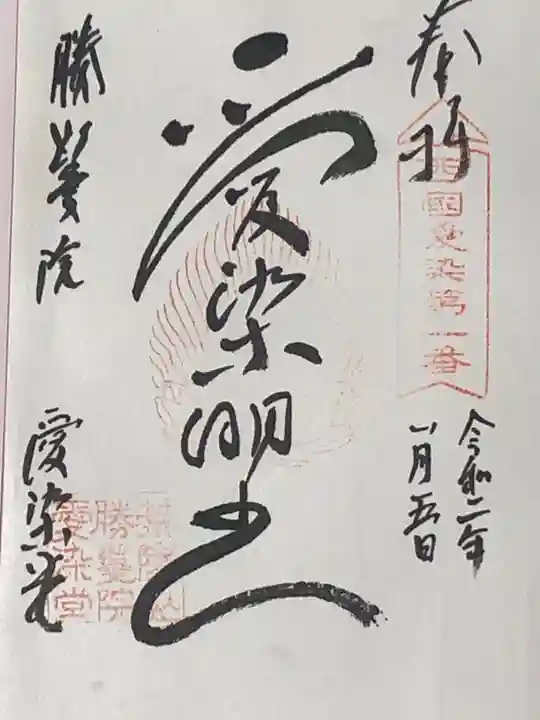 奉拝
西國愛染第一番
令和二年
八月五日
愛染明王
勝鬘院
愛染堂
勝鬘院
愛染堂